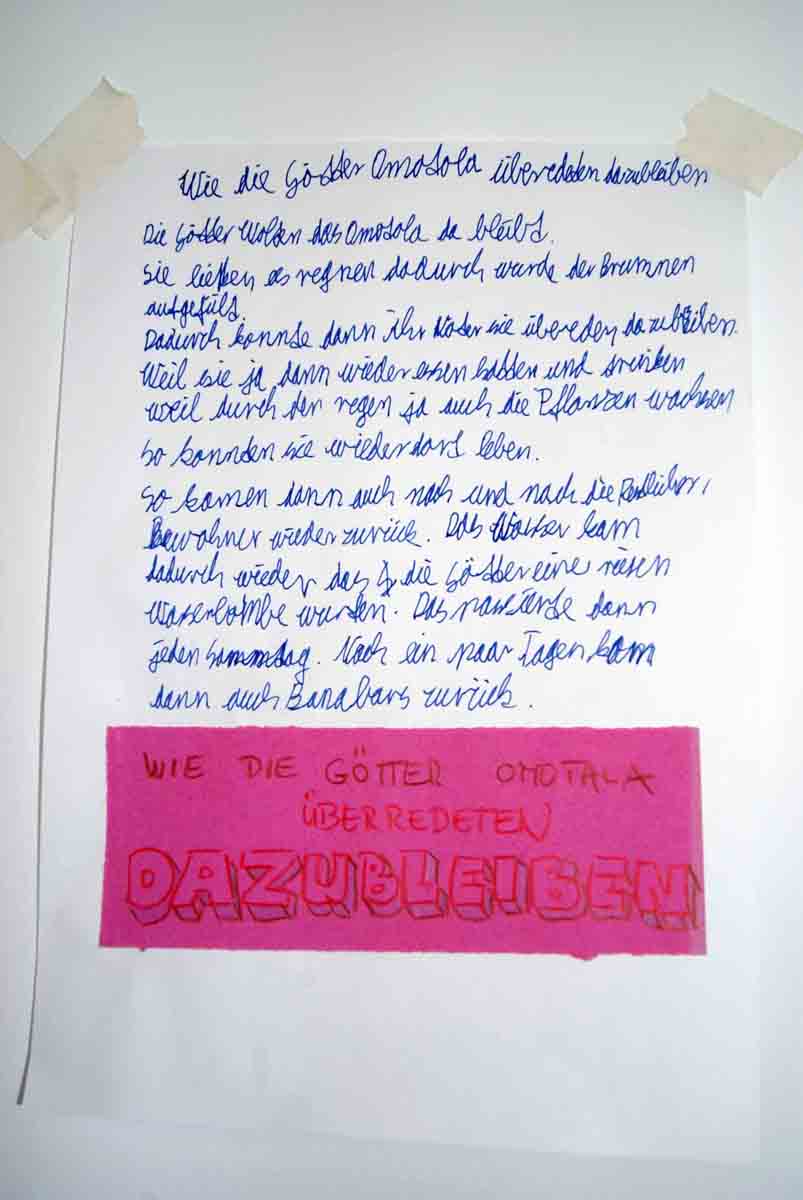 Wie die Götter Omotola überedeten dazubleiben
Die Götter Wolten das Omotola da bleibt.
Sie ließen es regnen dadurch wurde der Brunnen
aufgefült.
Dadurch konnte dann ihr Vater sie übereden dazubleiben.
Weil sie ja dann wieder essen hatten und trinken
weil durch den regen ja auch die Pflanzen wachsen
So konnten sie wieder dort leben.
So kamen dann auch nach und nach die Restlichen
Bewohner wieder zurück. Das Wasser kam
dadurch wieder das die Götter eine riesen
Waserbombe warfen. Das passierte dann
jeden Sammstag. Nach ein paar Tagen kam
dann auch Banabars zurück.
WIE DIE GÖTTER OMOTALA
ÜBERREDETEN
DAZUBLEIBEN